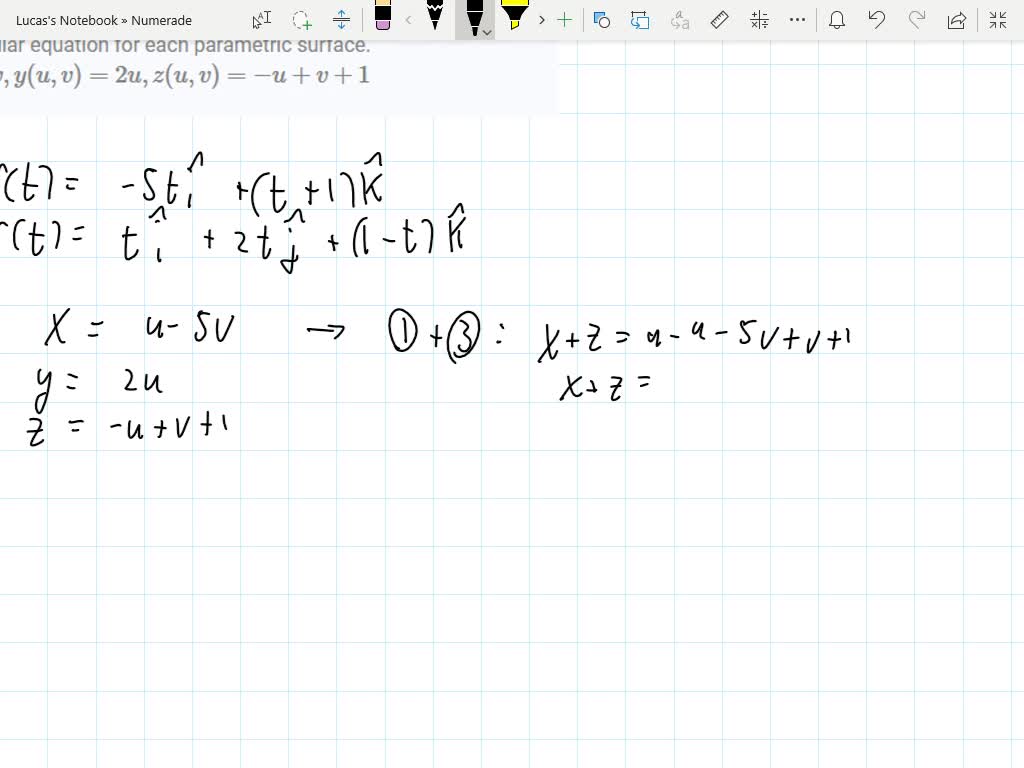 Lucas's Notebook » Numerade
lar equation for each parametric surface.
, y(u, v) = 2u, z(u, v) = −u + v + 1
(t) = -5t î + (t+1) k̂
(t) = t î + 2t ĵ + (1-t) k̂
x = u - 5v → ① + ③ : x + z = u - u - 5v + v + 1
y = 2u x + z =
z = -u + v + 1